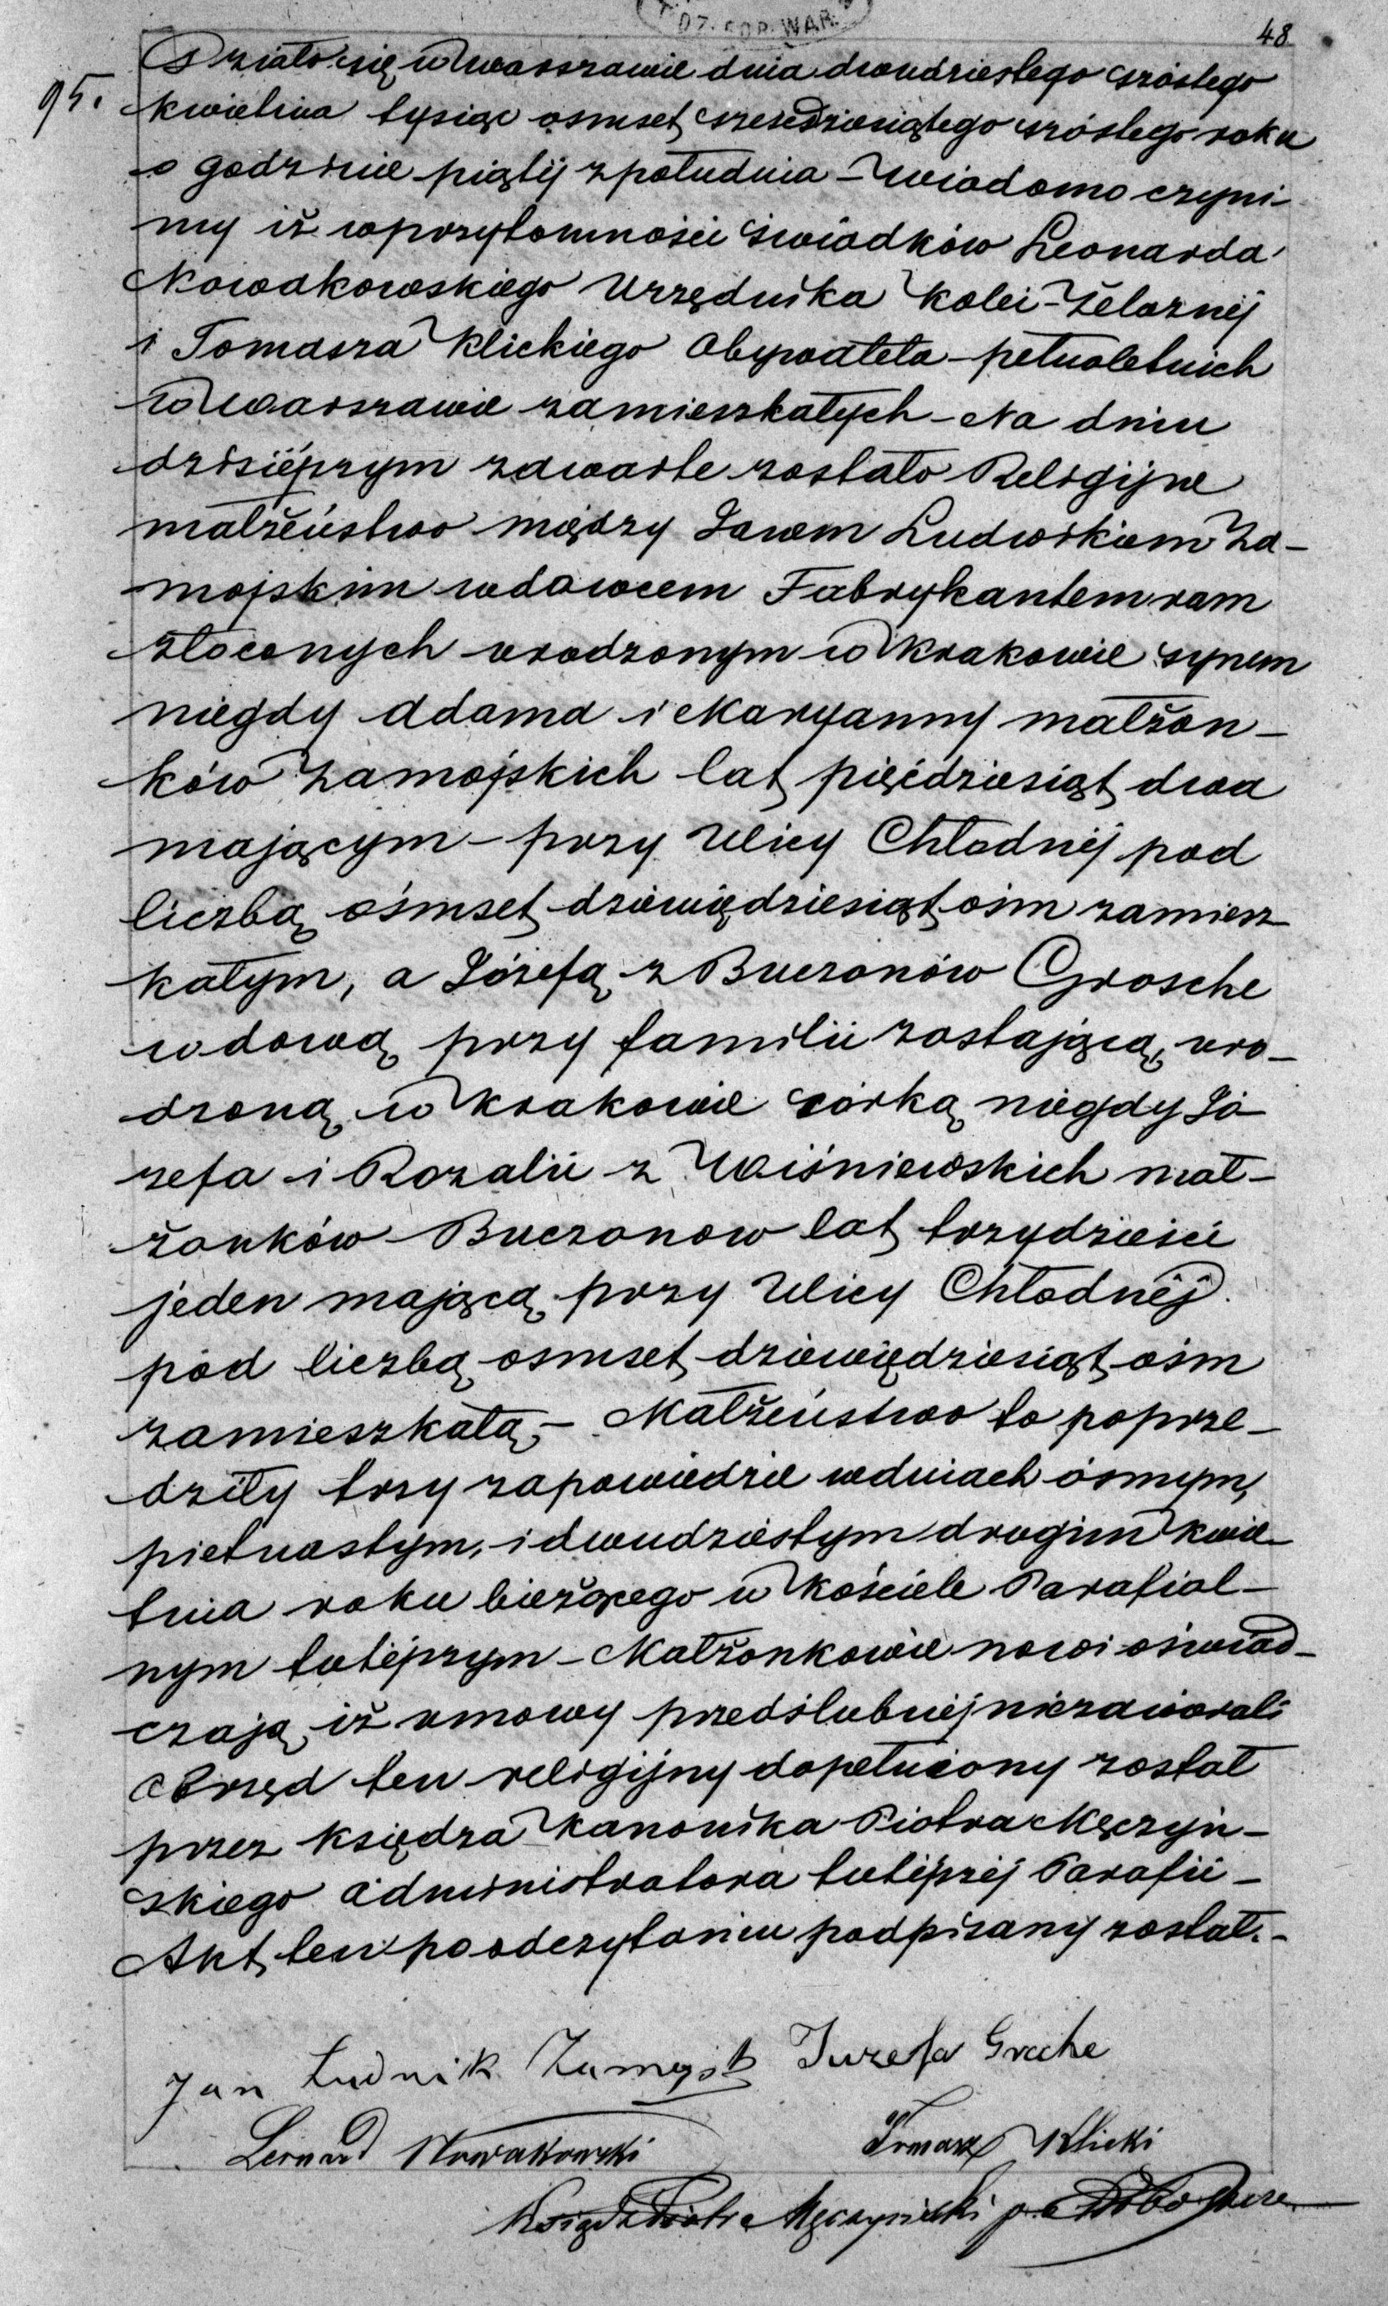 DZ. GOR. WAR.
48
95.
Działo się w Warszawie dnia dwudziestego szóstego
kwietnia tysiąc osmset szescdziesiątego szóstego roku
o godzinie piątéj z południa – Wiadomo czyni-
my iż w przytomności świadków Leonarda
Nowakowskiego Urzędnika kolei-żelaznéj
i Tomasza Klickiego Obywatela – pełnoletnich
w Warszawie zamieszkałych – Na dniu
dzisiéjszym zawarte zostało Religijne
małżeństwo między Janem Ludwikiem Za-
mojskim wdowcem Fabrykantem ram
złoconych urodzonym w Krakowie synem
niegdy Adama i Maryanny małżon-
ków Zamojskich lat pięćdziesiąt dwa
mającym – przy Ulicy Chłodnéj pod
liczbą ośmset dziewięćdziesiąt ośm zamiesz
kałym, a Józefą z Buczonów Grosche
wdową przy familii zostającą, uro-
dzoną w Krakowie córką niegdy Jó
zefa i Rozalii z Wiśniewskich mał-
żonków Buczonow lat trzydzieści
jeden mającą przy Ulicy Chłodnéj
pod liczbą osmset dziewięćdziesiąt ośm
zamieszkałą, – Małżeństwo to poprze-
dziły trzy zapowiedzie w dniach ósmym,
pietnastym, i dwudziestym drugim kwie-
tnia roku bieżącego w Kościele Parafial-
nym tutéjszym – Małżonkowie nowi oświad-
czają iż umowy przedślubnéj niezawierali
Obrzęd ten religijny dopełniony został
przez księdza kanonika Piotra Męczyń-
skiego administratora tutéjszéj Parafii –
Akt ten po odczytaniu podpisany został. –
Jan Ludwik Zamojsk Juzefa Grosche
Leonard Nowakowski Tomasz Klicki
Ksiądz Piotr Męczyński